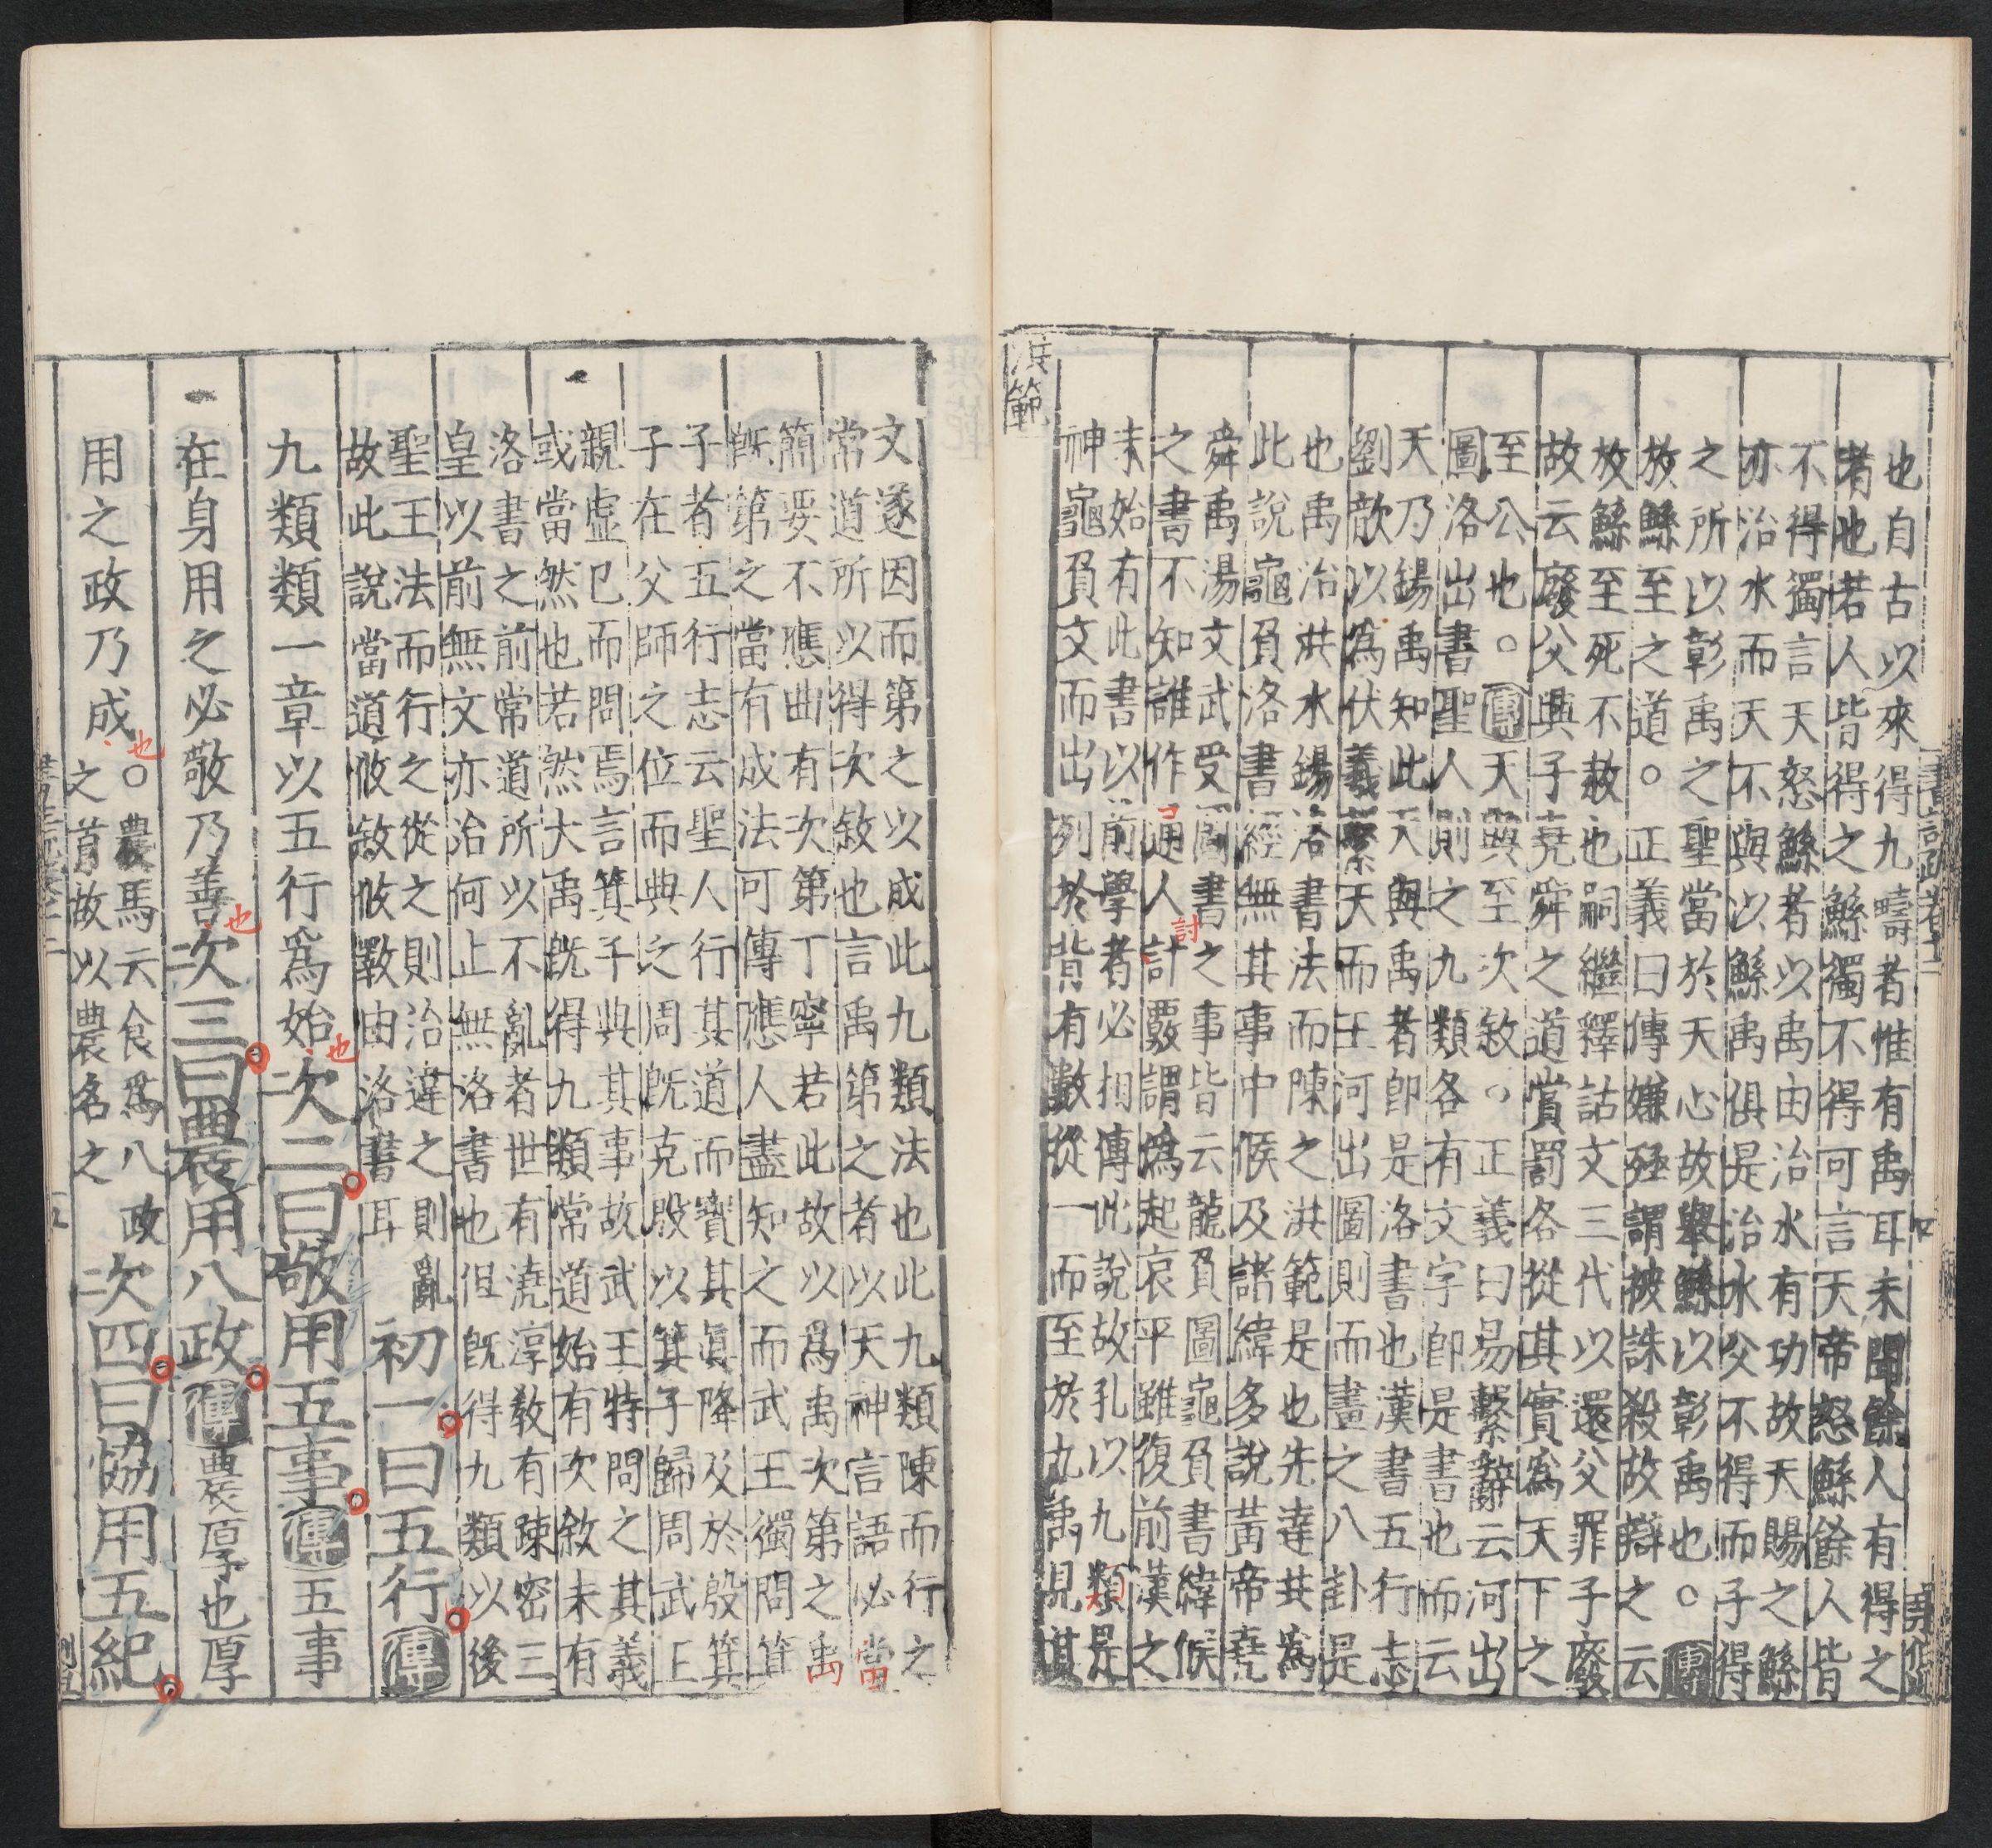 也自古以來得九疇者惟有禹耳未聞餘人有得之
者也若人皆得之鯀獨不得可言天帝怒鯀餘人皆
不得獨言天怒鯀者以禹由治水有功故天賜之鯀
亦治水而天不與以鯀禹俱是治水父不得而子得
之所以彰禹之聖當於天心故舉鯀以彰禹也○傳
放鯀至之道○正義曰傳嫌殛謂被誅殺故辯之云
放鯀至死不赦也嗣繼釋詁文三代以還父罪子廢
故云廢父興子堯舜之道賞罰各從其實爲天下之
至公也。傳天與至次敘。正義曰易繫辭云河出
圖洛出書聖人則之九類各有文字即是書也而云
天乃錫禹知此天與禹者即是洛書也漢書五行志
劉歆以爲伏羲繫天而王河出圖則而畫之八卦是
也禹治洪水錫洛書法而陳之洪範是也先達共爲
此說龜負洛書經無其事中候及諸緯多說黃帝堯
舜禹湯文武受圖書之事皆云龍負圖龜負書緯候
之書不知誰作通人討覈謂僞起哀平雖復前漢之
末始有此書以前學者必相傳此說故孔以九類是
神龜負文而出列於背有數從一而至於九禹見其
洪範
文遂因而第之以成此九類法也此九類陳而行之
常道所以得次敘也言禹第之者以天神言語必當
簡要不應曲有次第丁寧若此故以爲禹次第之禹
旣第之當有成法可傳應人盡知之而武王獨問箕
子者五行志云聖人行其道而寶其眞降及於殷箕
子在父師之位而典之周旣克殷以箕子歸周武王
親虛已而問焉言箕子典其事故武王特問之其義
或當然也若然大禹旣得九類常道始有次敘未有
洛書之前常道所以不亂者世有澆淳敎有疎密三
皇以前無文亦治何止無洛書也但旣得九類以後
聖王法而行之從之則治違之則亂
故此說當道攸敘攸斁由洛書耳
初一曰五行傳
九類類一章以五行爲始也次二曰敬用五事傳五事
在身用之必敬乃善也次三曰農用八政傳農厚也厚
用之政乃成也○農馬云食爲八政
之首故以農名之
次四曰協用五紀